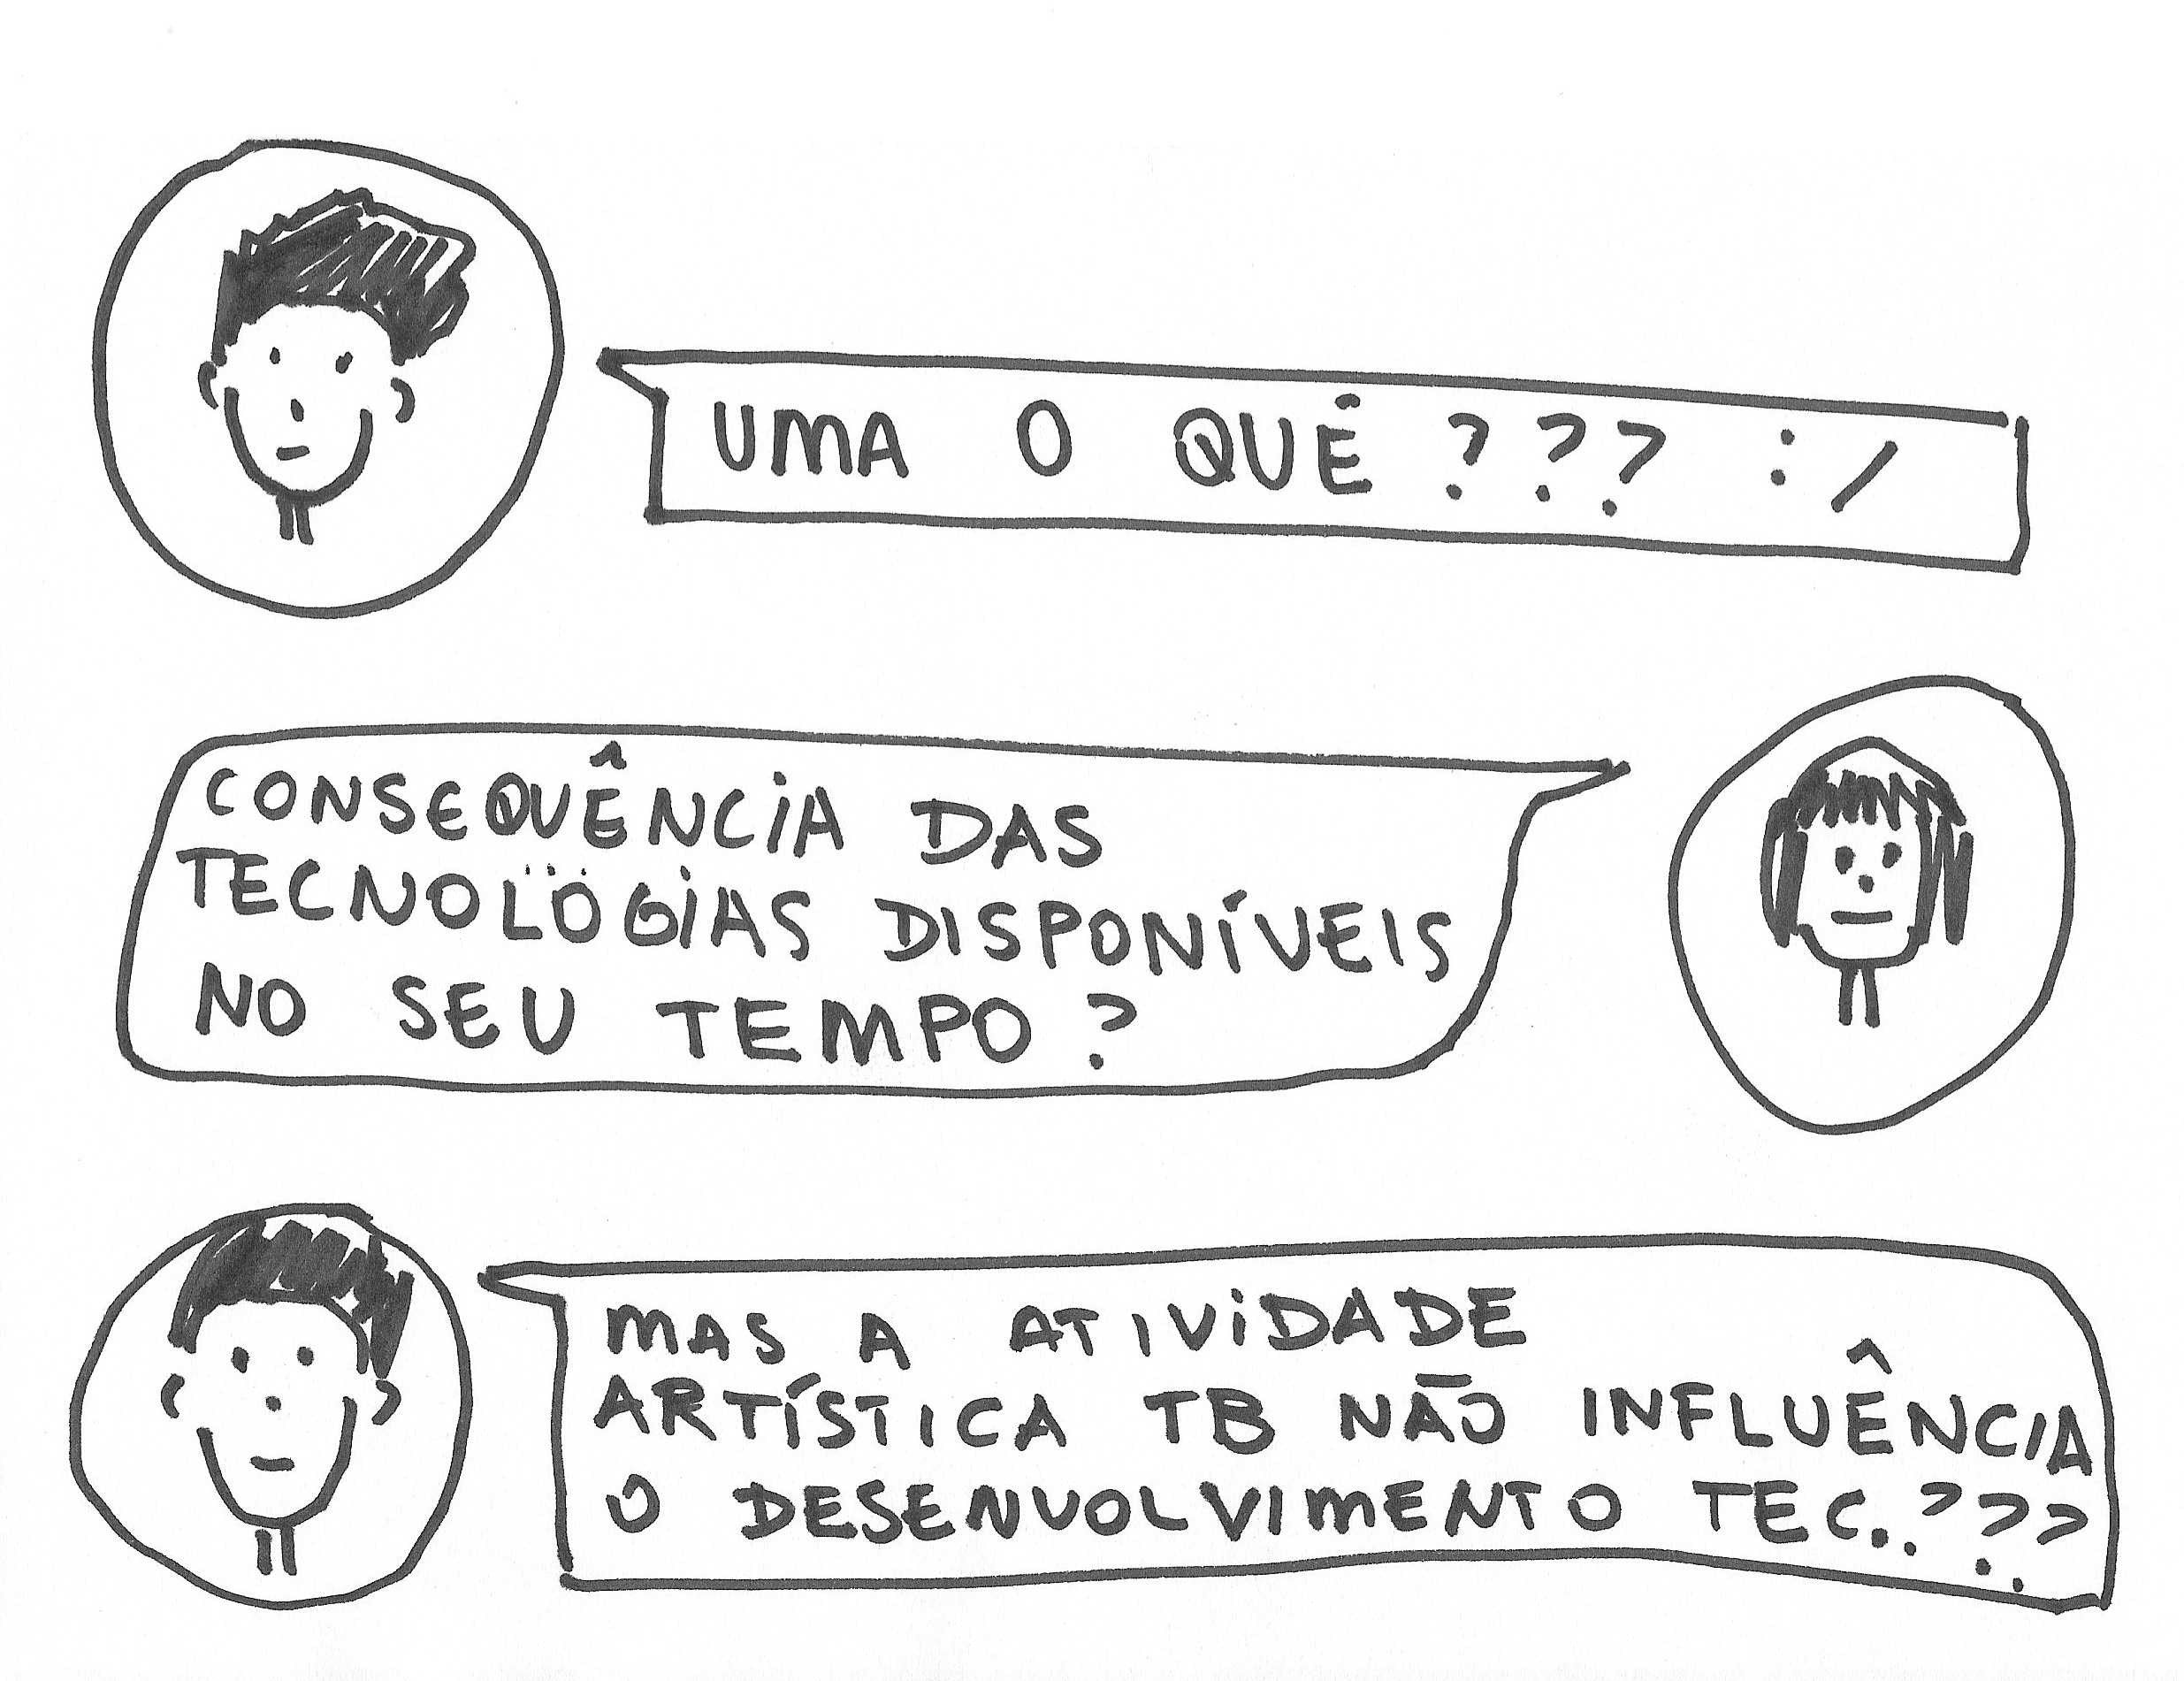 UMA O QUÊ ??? :/
CONSEQUÊNCIA DAS
TECNOLÖGIAS DISPONÍVEIS
NO SEU TEMPO ?
MAS A ATIVIDADE
ARTÍSTICA TB NÃO INFLUÊNCIA
O DESENVOLVIMENTO TEC.???